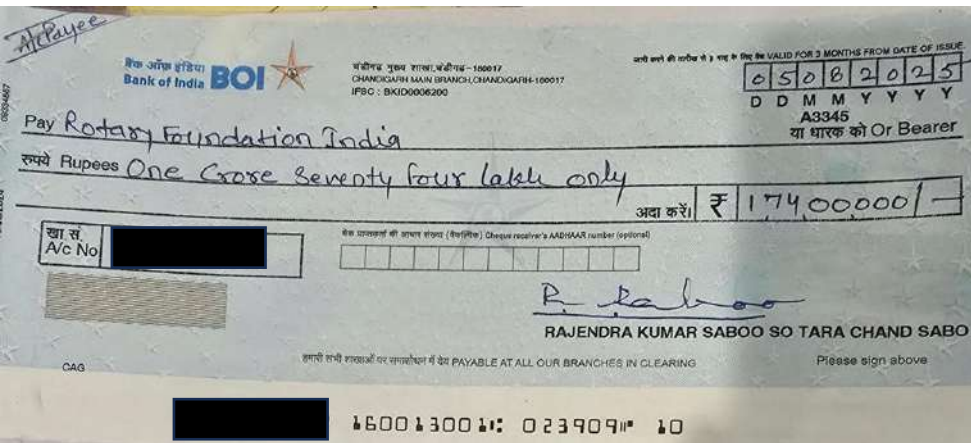 A/c Payee
बैंक ऑफ़ इंडिया
Bank of India BOI
चंडीगढ़ मुख्य शाखा, चंडीगढ़-160017
CHANDIGARH MAIN BRANCH, CHANDIGARH-160017
IFSC : BKID0006200
VALID FOR 3 MONTHS FROM DATE OF ISSUE
05082025
D D M M Y Y Y Y
A3345
या धारक को Or Bearer
Pay Rotary Foundation India
रुपये Rupees One Crore Seventy four lakh only
अदा करें। ₹ 17400000/-
खा.सं.
A/c No
Cheque receiver's AADHAAR number (optional)
R. Saboo
RAJENDRA KUMAR SABOO SO TARA CHAND SABO
हमारी सभी शाखाओं पर समाशोधन में देय PAYABLE AT ALL OUR BRANCHES IN CLEARING
Please sign above
CAG
160013001⑆ 023909⑈ 10